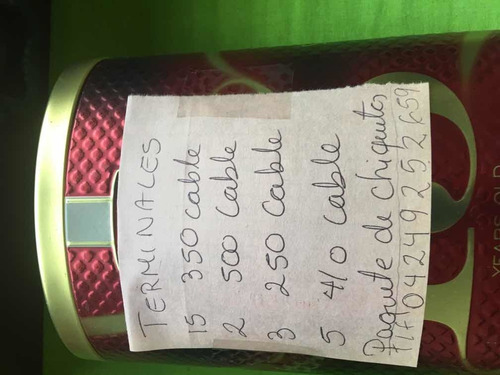 TERMINALES
15 350 cable
2 500 cable
3 250 cable
5 4/0 cable
Paquete de chiquitos
04249252659